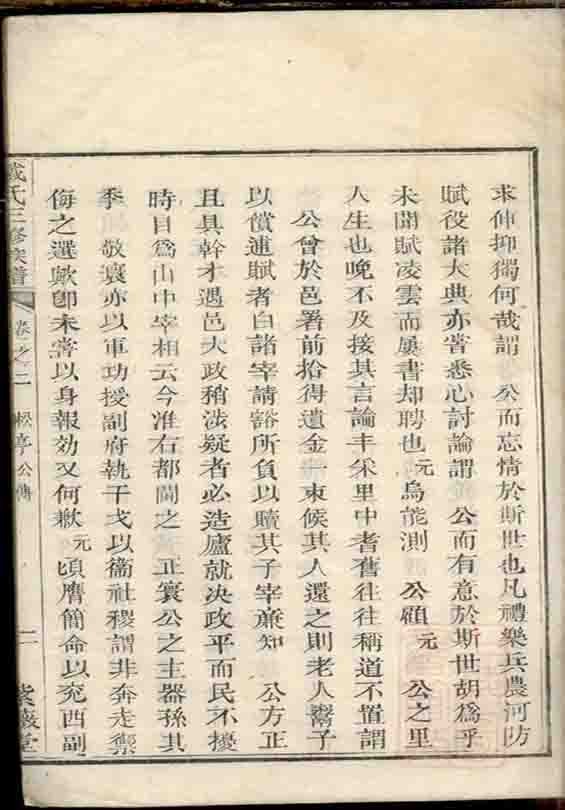 求伸抑獨何哉謂 公而忘情於斯世也凡禮樂兵農河防
賦役諸大典亦嘗悉心討論謂 公而有意於斯世胡爲乎
未聞賦凌雲而屢書却聘也元烏能測 公顧元 公之里
人生也晚不及接其言論丰采里中耆舊往往稱道不置謂
公曾於邑署前拾得遺金一束候其人還之則老人鬻子
以償逋賦者白諸宰請豁所負以贖其子宰廉知 公方正
且具幹才遇邑大政稍涉疑者必造廬就决政平而民不擾
時目爲山中宰相云今准右都閫之 正寰公之主器孫其
季 敬寰亦以軍功授副府執干戈以衞社稷謂非奔走禦
侮之選歟卽未嘗以身報効又何歉元頃膺簡命以充西副
戴氏三修族譜 卷之二 松亭公傳 二 紫巖堂